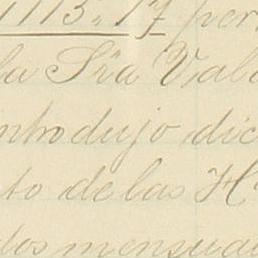 1113.17 per
la Sra Val
introdujo dic
to de las H
dos mensual